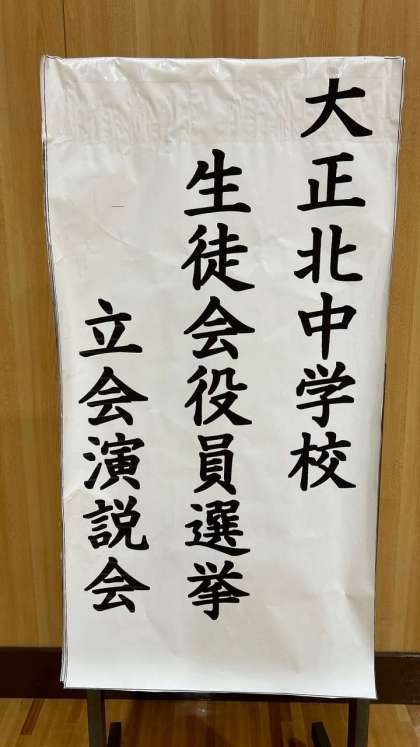 大正北中学校
生徒会役員選挙
立会演説会